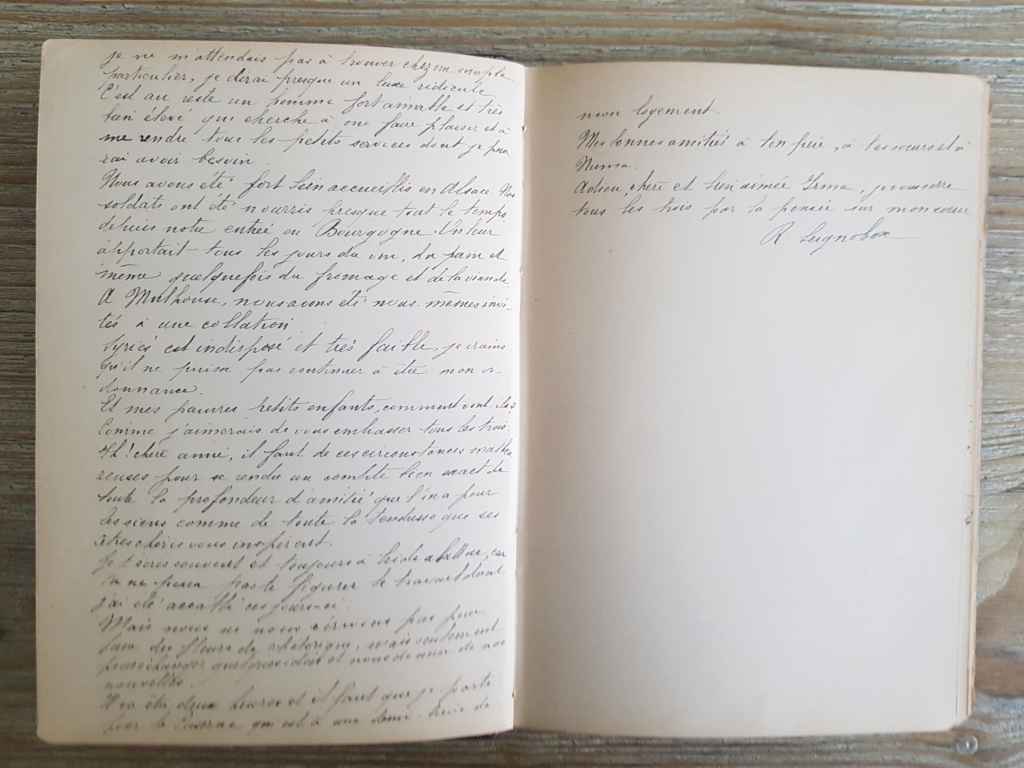 je ne m'attendais pas à trouver chez un simple
particulier, je dirai presque un luxe ridicule.
C'est au reste un homme fort aimable et très
bien élevé qui cherche à me faire plaisir et à
me rendre tous les petits services dont je pour
rai avoir besoin.
Nous avons été fort bien accueillis en Alsace. Nos
soldats ont été nourris presque tout le temps
depuis notre entrée en Bourgogne. On leur
apportait tous les jours du vin, du pain et
même quelquefois du fromage et de la viande.
A Mulhouse, nous avons été nous-mêmes invi-
tés à une collation.
est indisposé et très faible, je crains
qu'il ne puisse pas continuer à être mon or-
donnance.
Et mes pauvres petits enfants, comment vont-ils?
Comme j'aimerais de vous embrasser tous les trois.
Ah! chère amie, il faut de ces circonstances malheu
reuses pour se rendre un compte bien exact de
toute la profondeur d'amitié que l'on a pour
les siens comme de toute la tendresse que ces
êtres chéris vous inspirent.
Je t'écris souvent et toujours à bride abattue, car
tu ne peux pas te figurer le travail dont
j'ai été accablé ces jours-ci.
Mais nous ne nous écrivons pas pour
faire des fleurs de rhétorique, mais seulement
pour échanger quelques idées et nous donner de nos
nouvelles.
Il va être deux heures et il faut que je parte
pour la Caserne qui est à une demi-heure de
mon logement.
Mes bonnes amitiés à ton père, à tes soeurs et à
Numa.
Adieu, chère et bien aimée Irma, je vous serre
tous les trois par la pensée sur mon coeur
R.